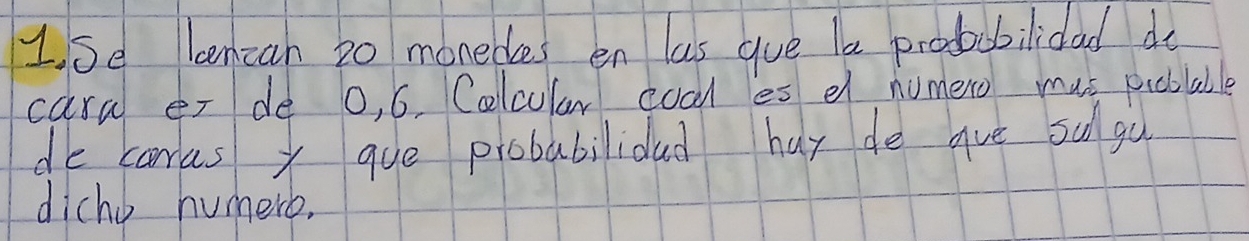 1. Se lanzan 20 monedas en las que la probabilidad de
cara es de 0,6. Calcular cual es el numero mas problable
de caras y que probabilidad hay de que salga
dicho numero.